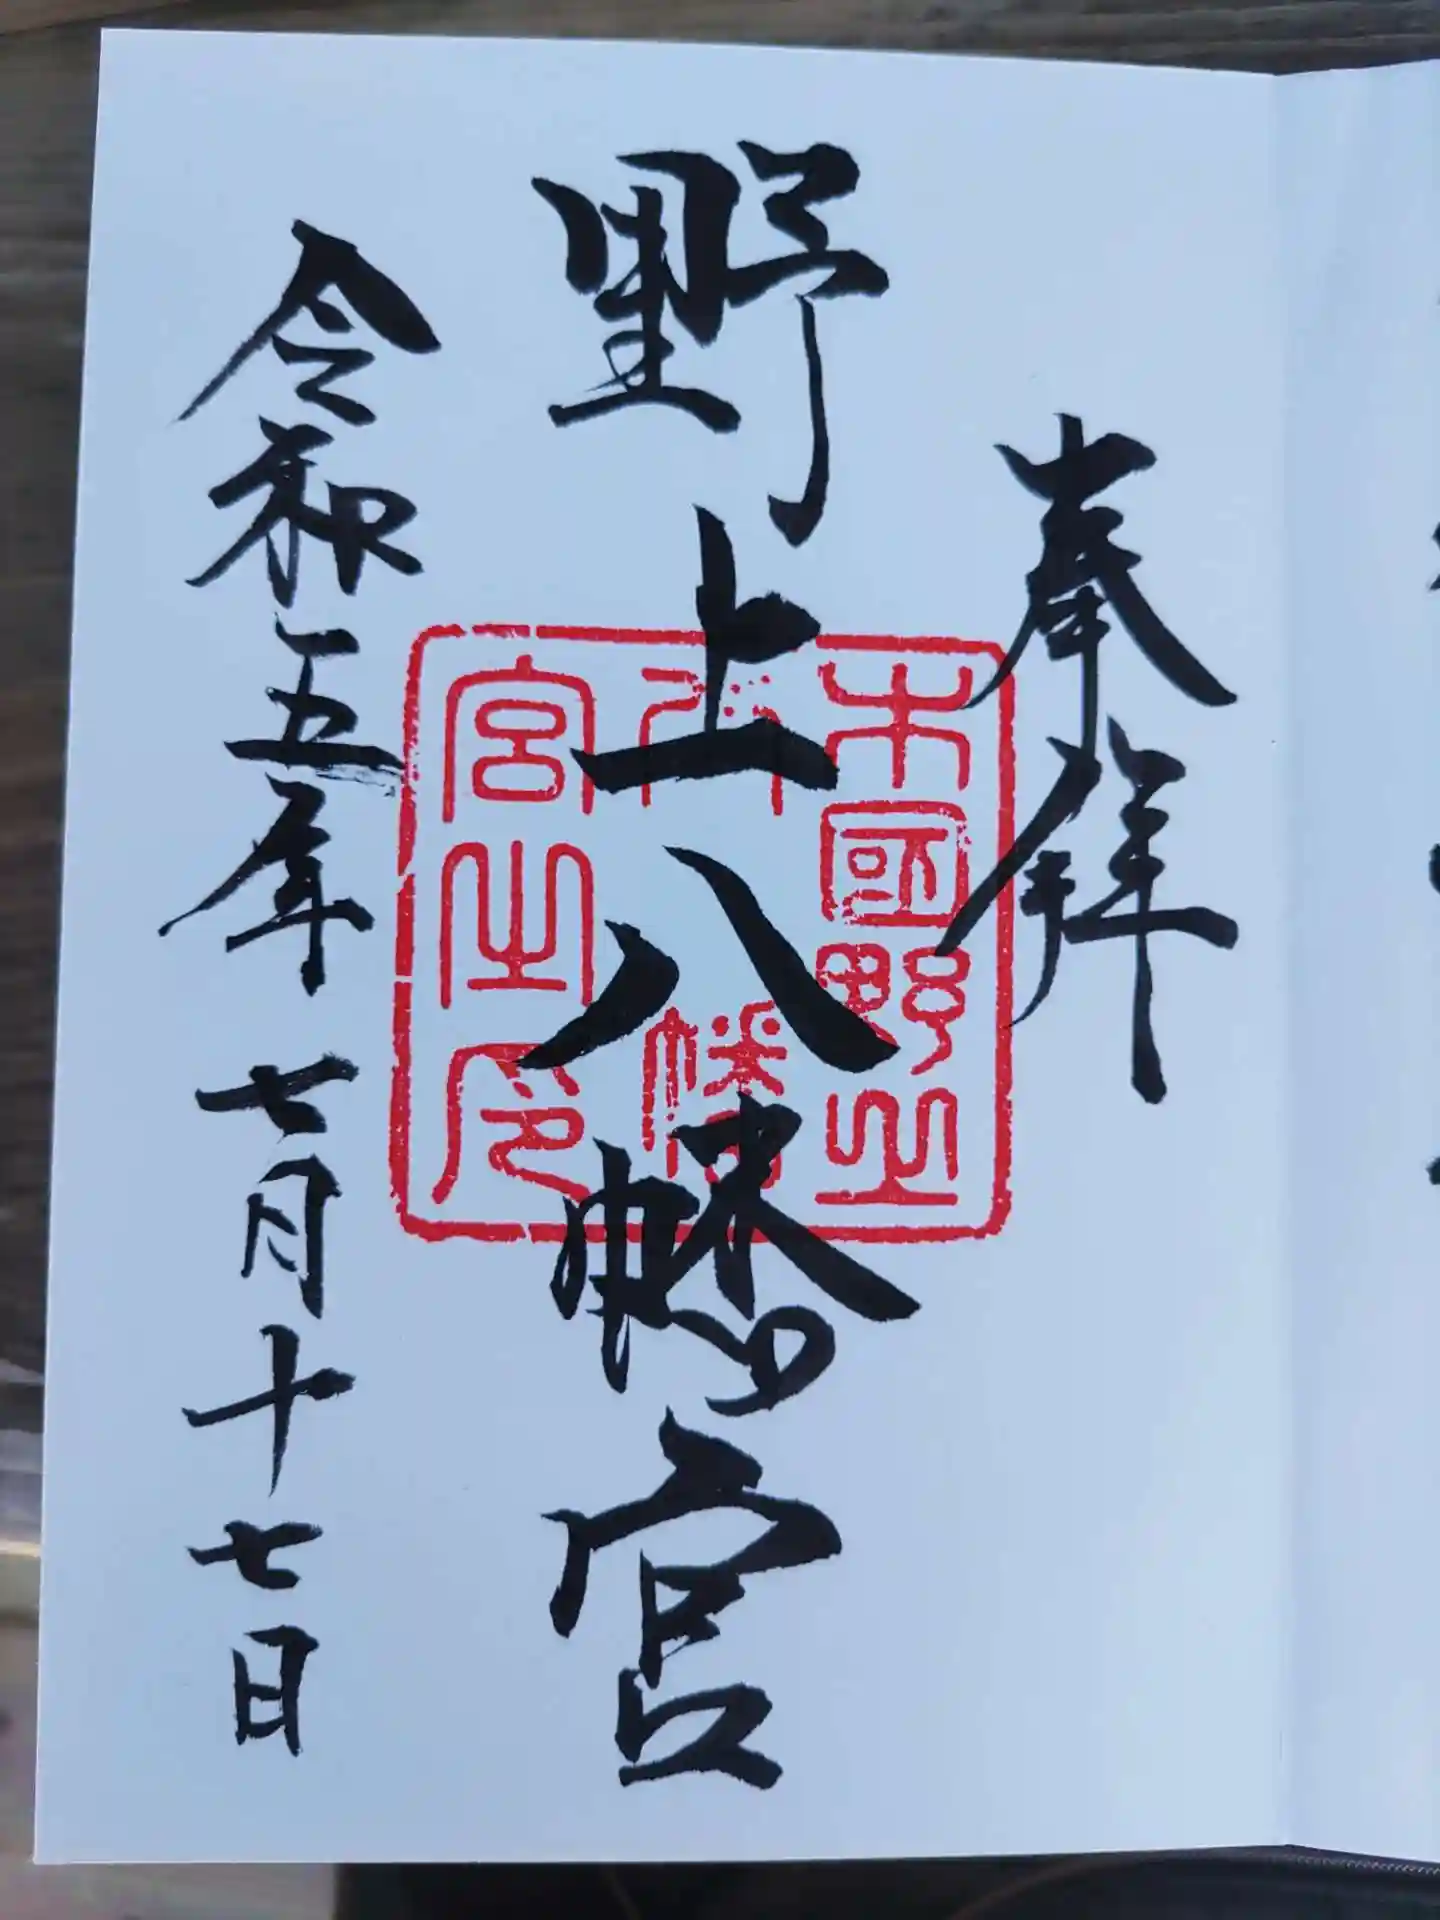 奉拝
野上八幡宮
令和五年 七月十七日
木國野上
八幡
宮之印